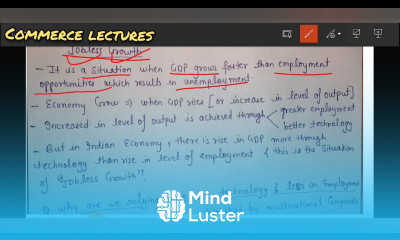 COMMERCE LECTURES
Jobless Growth
- It is a situation when GDP grows faster than employment
opportunities which results in unemployment.
- Economy Grow => when GDP rises [or increase in level of output]
- Increased in level of output is achieved through greater employment
better technology
- But in Indian Economy, there is rise in GDP more through
technology than rise in level of employment & this is the situation
of "Jobless Growth".
- Why are we relying technology & less on Employment
by multinational
Mind
Luster